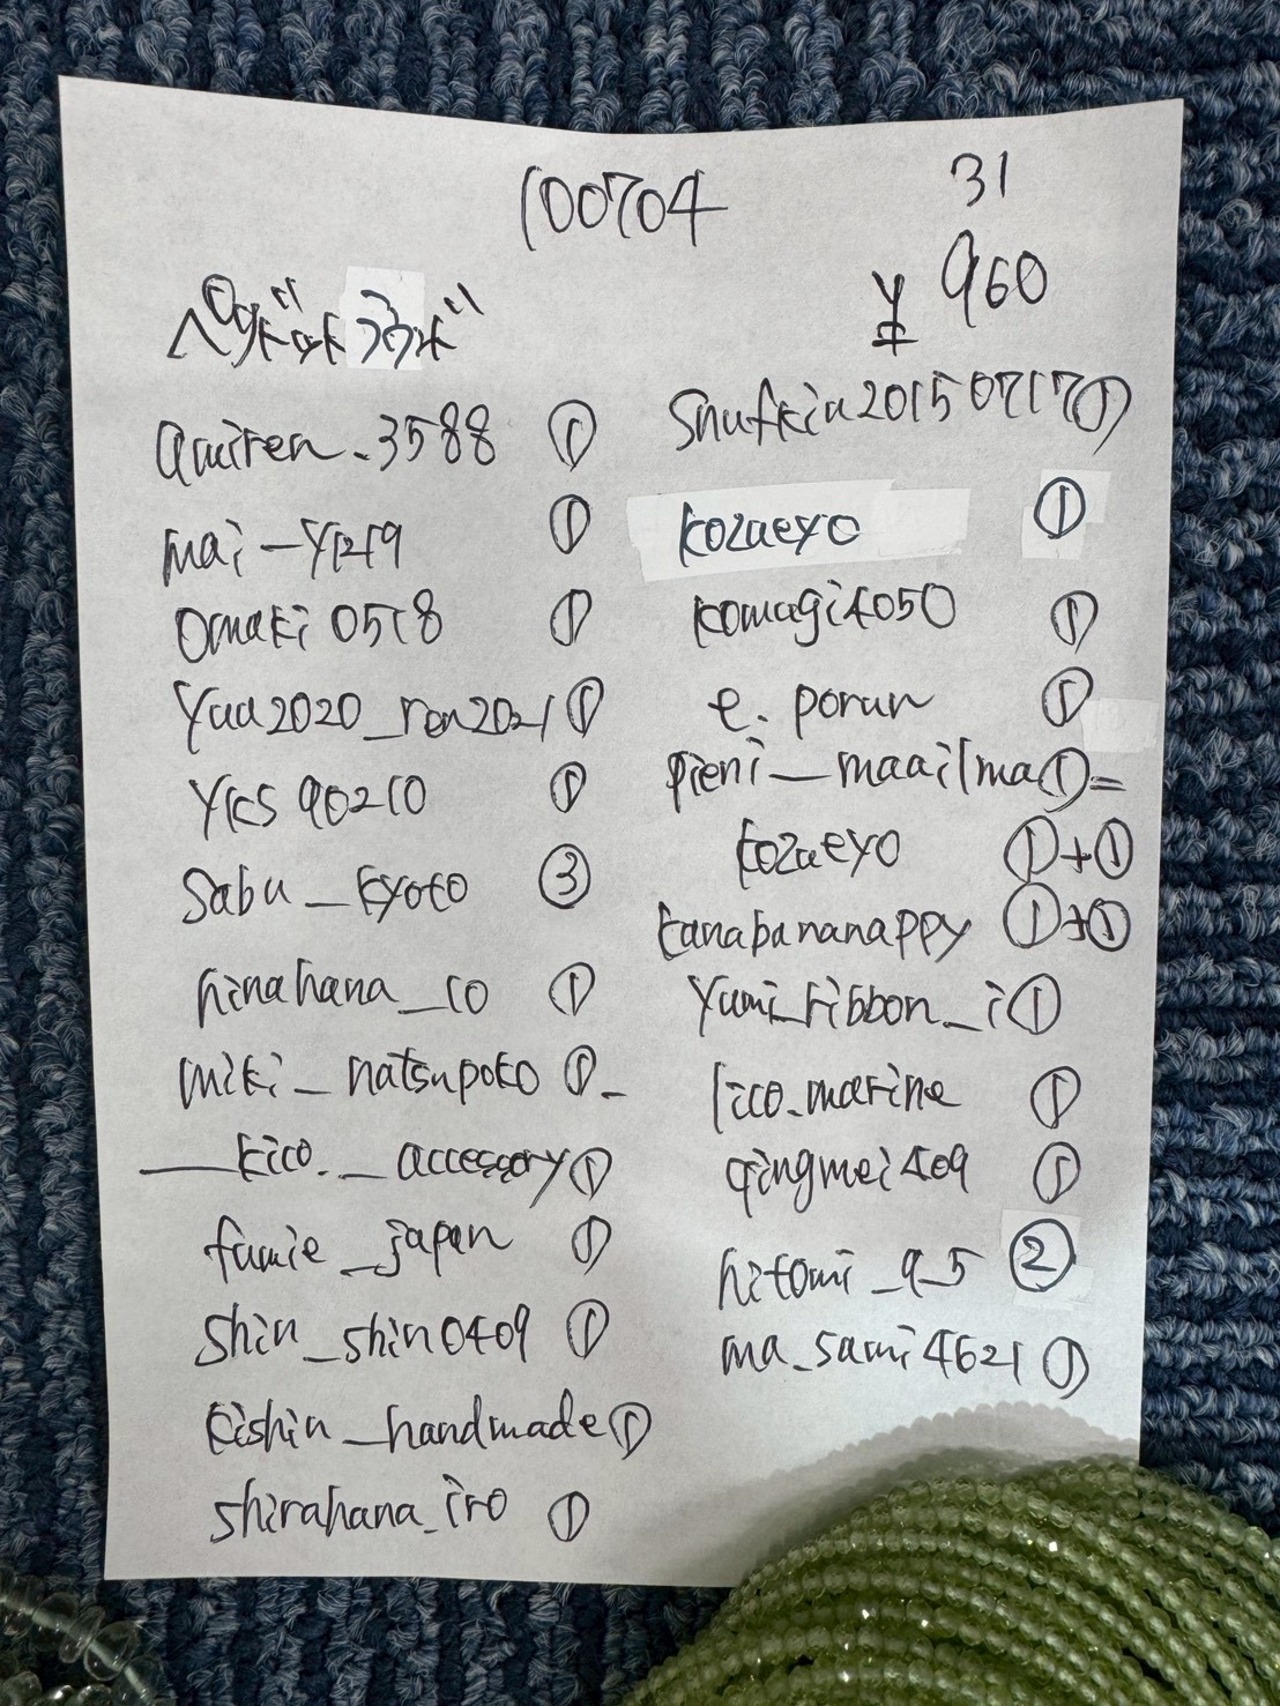 100704
31
¥ 960
amiren_3588 ①
mai-yk219 ①
omaki0518 ①
yaa2020_ren2021 ①
yks90210 ①
sabu_kyoto ③
hinahana_ro ①
miki_natsupoko ①_
__kico._accessory ①
fumie_japan ①
shin_shin0409 ①
kishin_handmade ①
shirahana_iro ①
snufkin20150717 ①
kozueyo ①
komugi4050 ①
e.porun ①
pieni_maailma ①=
kozueyo ①+①
tanabananappy ①+①
yumi_ribbon_i ①
lico.marine ①
qingmei409 ①
hitomi_9_5 ②
ma_sami4621 ①